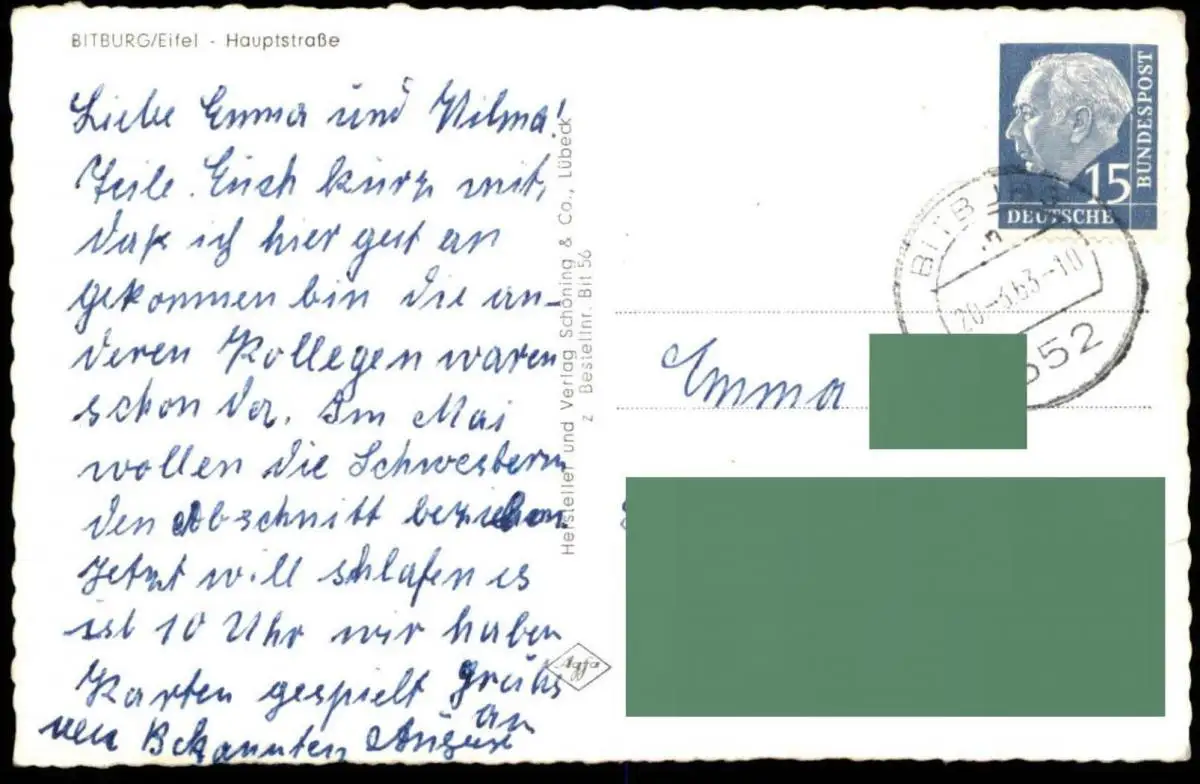 BITBURG/Eifel - Hauptstraße
Liebe Emma und Wilma!
Teile Euch kurz mit,
daß ich hier gut an
gekommen bin die an-
deren Kollegen waren
schon da. Im Mai
wollen die Schwestern
den Abschnitt beziehen
Jetzt will schlafen es
ist 10 Uhr wir haben
Karten gespielt Grüße
an
Bekannten August
Hersteller und Verlag Schöning & Co., Lübeck
z Bestellnr. Bit 56
Agfa
15
DEUTSCHE
BUNDESPOST
BITBURG
20.-3.63-10
Emma